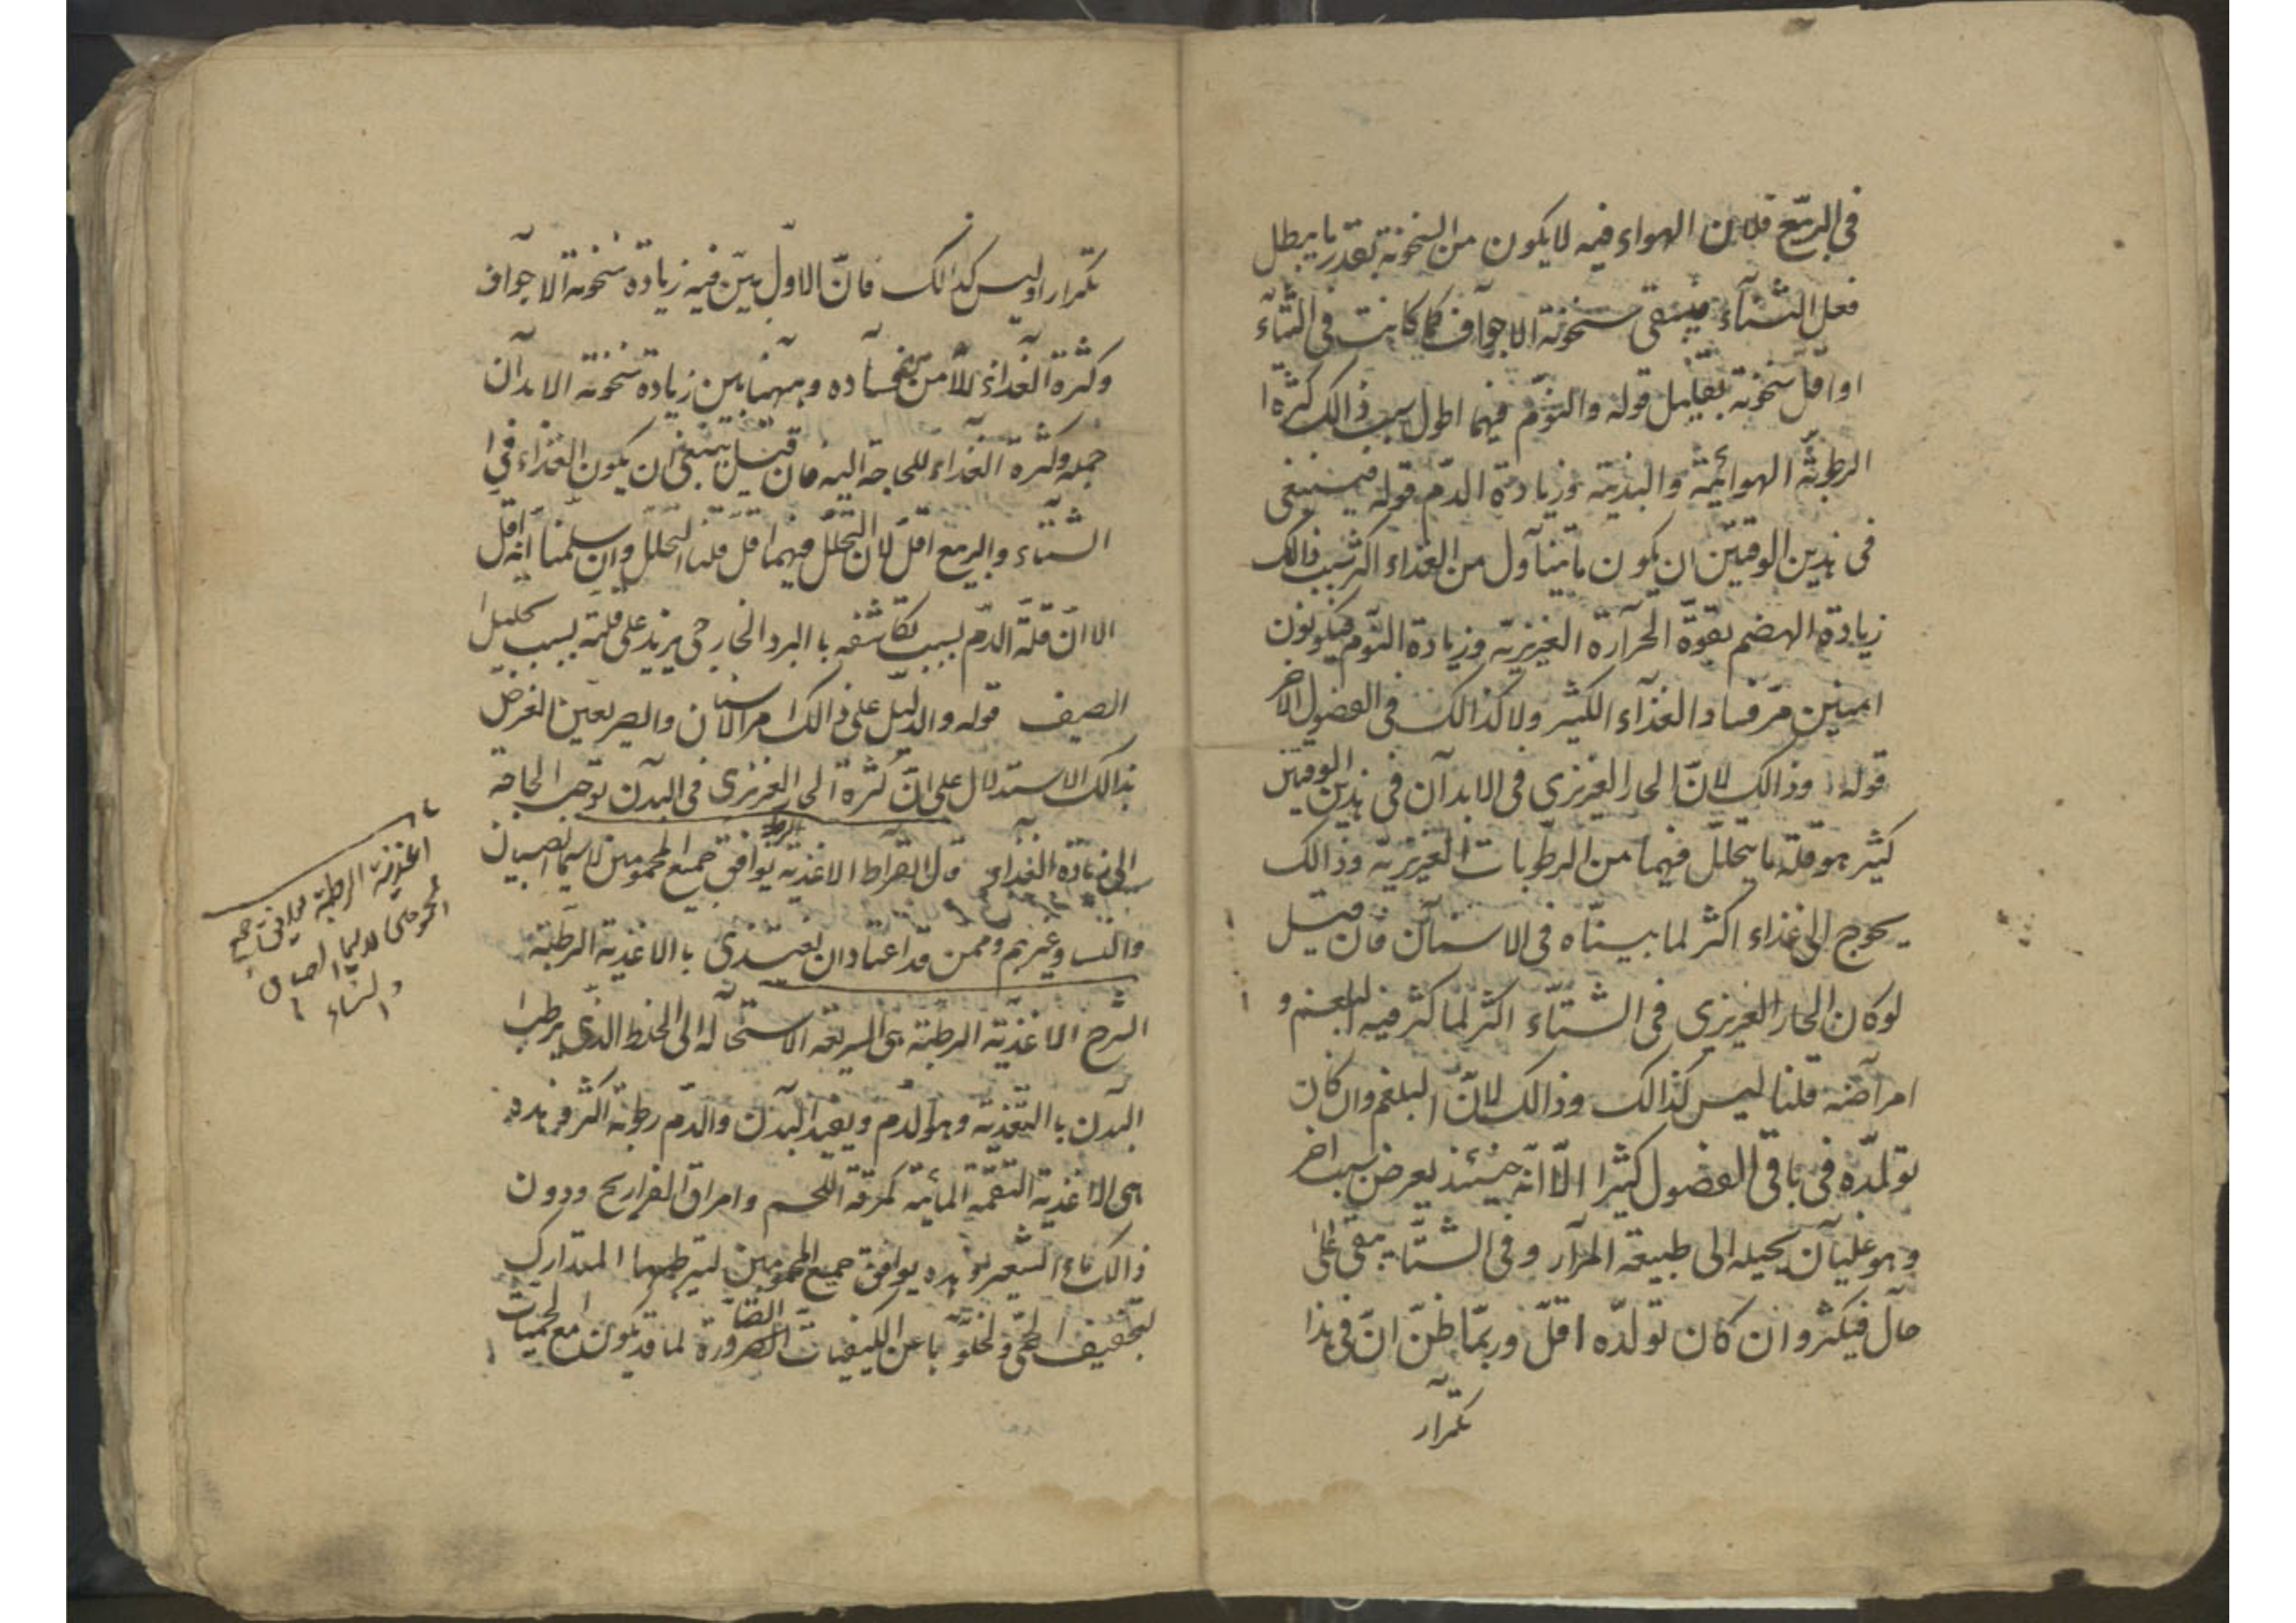 في الربيع فلان الهواء فيه لا يكون من السخونة بقدر ما يبطل
فعل الشتآء فيبقى سخونة الاجوآف كما كانت في الشتآء
او اقلّ سخونة بقليل قوله والنوّم فيهما اطول سبب ذالك كثرة ا
الرطوبة الهوائيّة والبدنية وزيادة الدّم قوله فينبغي
في هذين الوقتين ان يكون ما يتنآول من الغذاء اكثر سبب ذالك
زيادة الهضم بقوّة الحرآرة الغريزية وزيادة النوّم فيكونون
امينين من فساد الغذآء الكثير ولا كذالك في الفصول الأخر
قوله وذالك لانّ الحار الغريزي في الابدآن في هذين الوقتين
كثير هو قلّة ما يتحلّل فيهما من الرطوبات الغريزية وذالك
يحوج الى غذاء اكثر لما بيّناه في الاسنآن فان قيل
لو كان الحار الغريزي في الشتآء اكثر لما كثر فيه البلغم و
امرآضه قلنا ليس كذالك وذالك لانّ البلغم وان كان
تولدّه في باقي الفصول كثيرا الّا انّه حينئذ يعرض سبب اخر
وهو غليآن يحيله الى طبيعة المرآر وفي الشتآ يبقى على
حآل فيكثر وان كان تولدّه اقلّ وربمّا ظنّ انّ في هذا
تكرآر
تكرار او ليس كذالك فانّ الاول بيّن فيه زيادة سخونة الاجوآف
وكثرة الغذآء للأمن من فسآده وههنا بين زيادة سخونة الابدآن
جملة وكثرة الغذآء للحاجة اليه فان قيل ينبغي ان يكون الغذاء في ا
الشتآء والربيع اقلّ لان التحلّل فيهما اقل قلنا التحلل وان سلّمنا انّه اقل
الا انّ قلّة الدّم بسبب تكاثفه با البرد الخارجي يزيد على قلته بسبب تحليل
الصيف قوله والدليّل على ذالك امر الاسنان والصريعين الغرض
بذالك الاستدلال على انّ كثرة الحار الغريزي في البدآن توجب الحاجة
الى زيادة الغذآء قال ابقراط الاغذية الرطبة توافق جميع المحمومين لا سيما الصبيان
وغيرهم وممن قد اعتاد ان يغتذي با الاغذية الرطبة
الشرح الاغذّية الرطبة هي السريعة الاستحآلة الى الخلط الذّي يرطب ا
البدن با التغّذية وهو الدّم ويفيد البدّن والدّم رطوبة اكثر وهذه
هي الاغذية التفهّة المائية كمرقة اللحم وامراق الفراريج ودون
ذالك ماء الشعير فهذه يوافق جميع المحمومين لترطيبها المتدارك
لتجفيف الحمّى ولخلوّها عن الكيفيات الضآرورة لما قد يكون مع الحميات
اغذية الرطبة يوافق جميع
المحمومين لا سيما الصبيان
والنساء